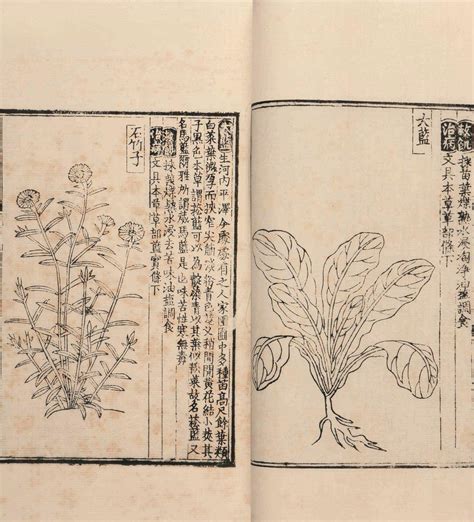 救飢 採苗葉煠熟水淘淨油鹽調食
治病 文具本草草部條下
大藍
大藍 生河內平澤今處處有之人家園圃中多種苗高尺餘葉類
白菜葉微厚而狹窄尖淡粉青色莖叉稍間開黃花結小莢其
子黑色本草謂菘藍可為靛染青以其葉似菘菜故名菘藍又
名馬藍爾雅所謂葴馬藍是也味苦性寒無毒
救飢 採葉煠熟水浸去苦味油鹽調食
治病 文具本草草部藍實條下
石竹子